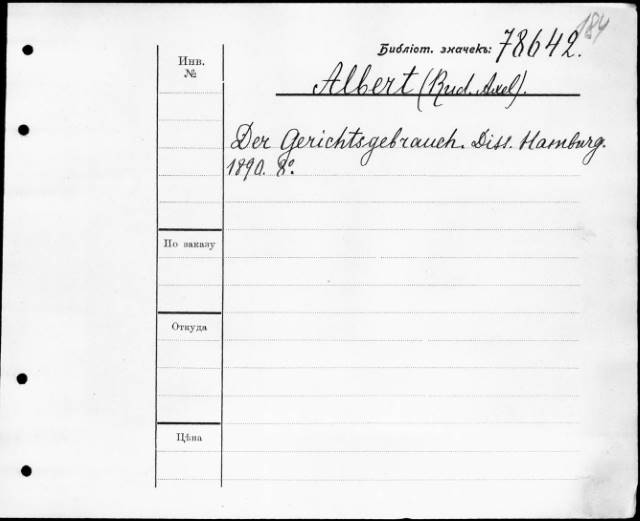 184
Библіот. значекъ: 78642.
Albert (Rud. Axel).
Инв.
№
Der Gerichtsgebrauch. Diss. Hamburg.
1890. 8º.
По заказу
Откуда
Цѣна